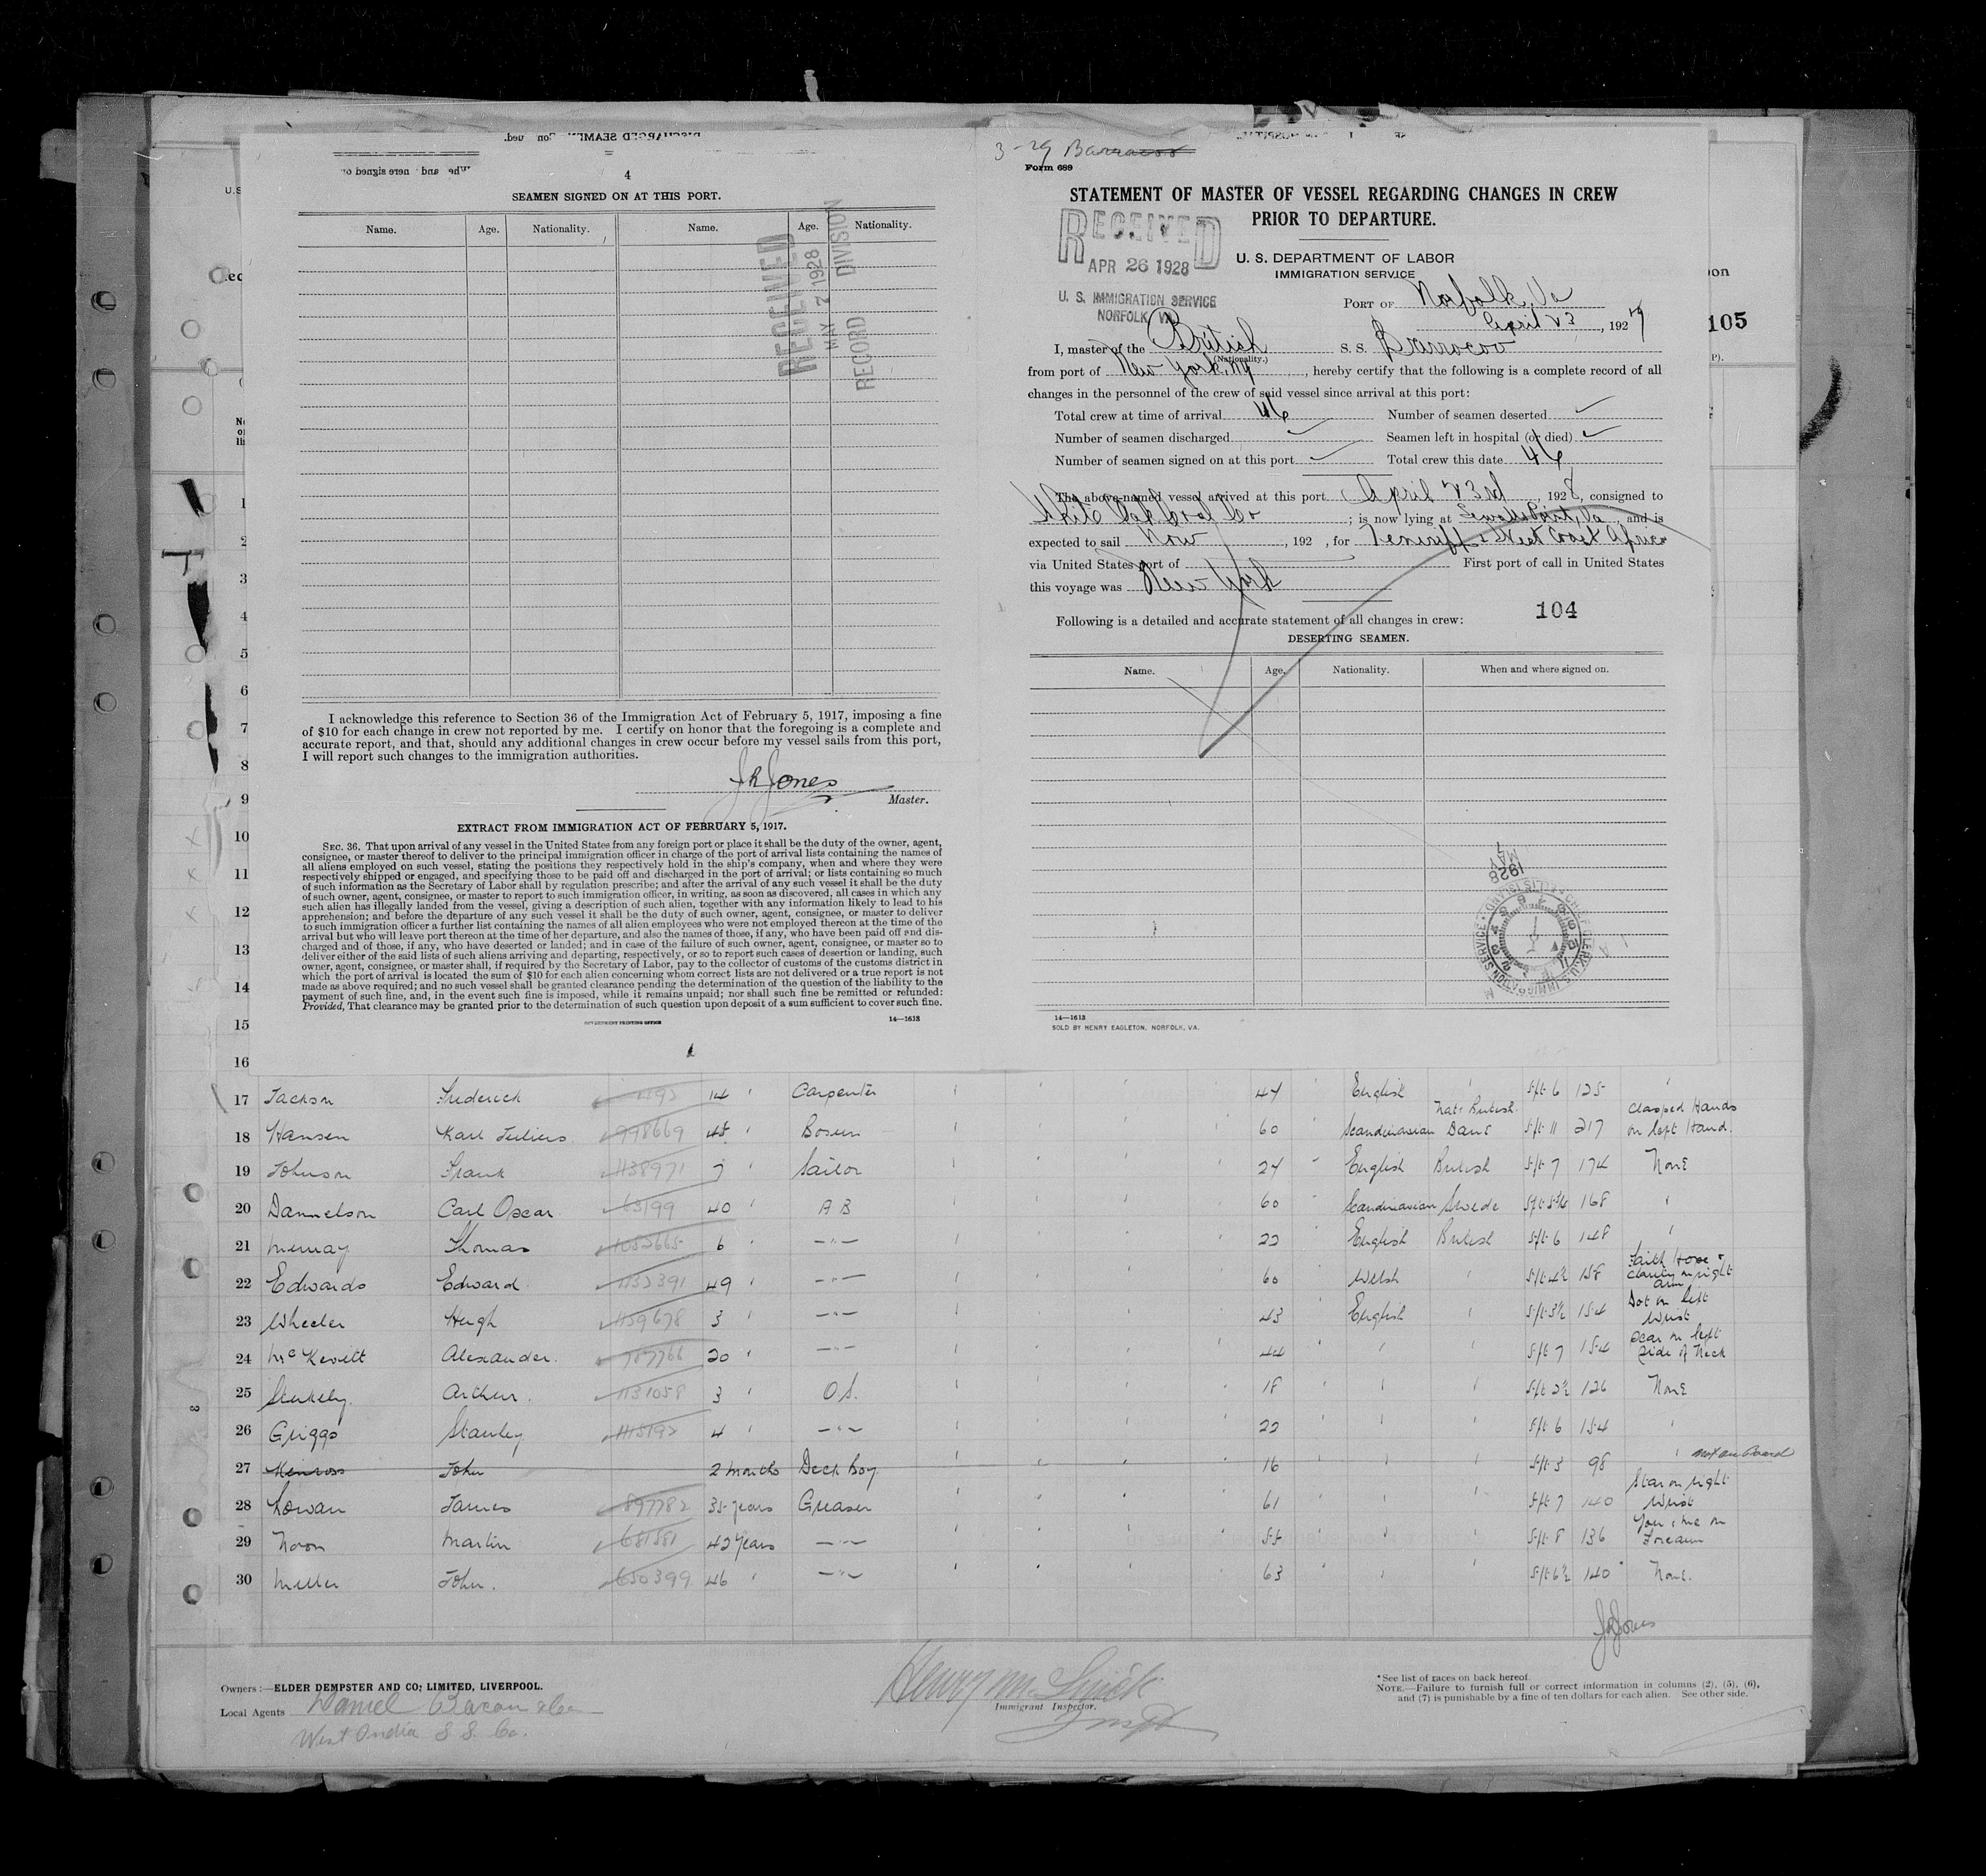 4
SEAMEN SIGNED ON AT THIS PORT.
Name. Age. Nationality. Name. Age. Nationality.
RECEIVED
MAY 2 1928
RECORD DIVISION
I acknowledge this reference to Section 36 of the Immigration Act of February 5, 1917, imposing a fine
of $10 for each change in crew not reported by me. I certify on honor that the foregoing is a complete and
accurate report, and that, should any additional changes in crew occur before my vessel sails from this port,
I will report such changes to the immigration authorities.
J R Jones
Master.
EXTRACT FROM IMMIGRATION ACT OF FEBRUARY 5, 1917.
SEC. 36. That upon arrival of any vessel in the United States from any foreign port or place it shall be the duty of the owner, agent,
consignee, or master thereof to deliver to the principal immigration officer in charge of the port of arrival lists containing the names of
all aliens employed on such vessel, stating the positions they respectively hold in the ship's company, when and where they were
respectively shipped or engaged, and specifying those to be paid off and discharged in the port of arrival; or lists containing so much
of such information as the Secretary of Labor shall by regulation prescribe; and after the arrival of any such vessel it shall be the duty
of such owner, agent, consignee, or master to report to such immigration officer, in writing, as soon as discovered, all cases in which any
such alien has illegally landed from the vessel, giving a description of such alien, together with any information likely to lead to his
apprehension; and before the departure of any such vessel it shall be the duty of such owner, agent, consignee, or master to deliver
to such immigration officer a further list containing the names of all alien employees who were not employed thereon at the time of the
arrival but who will leave port thereon at the time of her departure, and also the names of those, if any, who have been paid off and dis-
charged and of those, if any, who have deserted or landed; and in case of the failure of such owner, agent, consignee, or master so to
deliver either of the said lists of such aliens arriving and departing, respectively, or so to report such cases of desertion or landing, such
owner, agent, consignee, or master shall, if required by the Secretary of Labor, pay to the collector of customs of the customs district in
which the port of arrival is located the sum of $10 for each alien concerning whom correct lists are not delivered or a true report is not
made as above required; and no such vessel shall be granted clearance pending the determination of the question of the liability to the
payment of such fine, and, in the event such fine is imposed, while it remains unpaid; nor shall such fine be remitted or refunded:
Provided, That clearance may be granted prior to the determination of such question upon deposit of a sum sufficient to cover such fine.
GOVERNMENT PRINTING OFFICE 14—1613
3-29 Barracoo
Form 689
STATEMENT OF MASTER OF VESSEL REGARDING CHANGES IN CREW
PRIOR TO DEPARTURE.
RECEIVED
APR 26 1928
U. S. IMMIGRATION SERVICE
NORFOLK VA.
U. S. DEPARTMENT OF LABOR
IMMIGRATION SERVICE
PORT OF Norfolk, Va
April 23, 192
105
I, master of the British S. S. Barracoo
(Nationality.)
from port of New York, NY, hereby certify that the following is a complete record of all
changes in the personnel of the crew of said vessel since arrival at this port:
Total crew at time of arrival 46 Number of seamen deserted ✓
Number of seamen discharged ✓ Seamen left in hospital (or died) ✓
Number of seamen signed on at this port ✓ Total crew this date 46
The above-named vessel arrived at this port April 23rd, 1928, consigned to
White Oak Coal Co; is now lying at Sewalls Point, Va, and is
expected to sail Now, 192 , for Teneriff & West Coast Africa
via United States port of First port of call in United States
this voyage was New York
Following is a detailed and accurate statement of all changes in crew: 104
DESERTING SEAMEN.
Name. Age. Nationality. When and where signed on.
1928
MAY
7
14—1613
SOLD BY HENRY EAGLETON, NORFOLK, VA.
1
2
3
4
5
6
7
8
9
10
11
12
13
14
15
16
17 Jackson Frederick 14 " Carpenter 47 English 5ft 6 125
18 Hansen Karl Julius 998669 45 " Bosun 60 Scandinavian Nat. British Dane 5ft 11 217 Clasped Hands on left Hand.
19 Johnson Frank 1138971 7 " Sailor 24 English British 5ft 7 174 None
20 Dannelson Carl Oscar 63199 40 " A B 60 Scandinavian Swede 168 "
21 Thomas 1052665 6 " —"— 22 English British 5ft 6 148 "
22 Edwards Edward 1132391 49 " —"— 60 Welsh " 5ft 4½ 158 Faith Hope & Charity on right arm
23 Wheeler Hugh 1159678 3 " —"— 43 English " 5ft 3½ 154 Dot on left Wrist
24 McKevitt Alexander. 787766 20 " —"— 44 " " 5ft 7 154 Scar on left Side of Neck
25 Arthur. 1131058 3 " O.S. 18 " " 5ft 2½ 126 None
26 Griggs Stanley 1115192 4 " —"— 22 " " 5ft 6 154 "
27 Kinross John 2 months Deck Boy 16 " " 5ft 3 98 " not on Board
28 Lowan James 897782 35 years Greaser 61 " " 5ft 7 140 Star on right Wrist
29 Noon Martin 681581 42 years —"— 55 " " 5ft 8 136 You & me on Forearm
30 Miller John. 650399 46 " —"— 63 " " 5ft 6½ 140 None.
J R Jones
Owners:—ELDER DEMPSTER AND CO; LIMITED, LIVERPOOL.
Local Agents Daniel Bacon
West India S. S. Co.
Henry
Immigrant Inspector.
*See list of races on back hereof.
NOTE.—Failure to furnish full or correct information in columns (2), (5), (6),
and (7) is punishable by a fine of ten dollars for each alien. See other side.